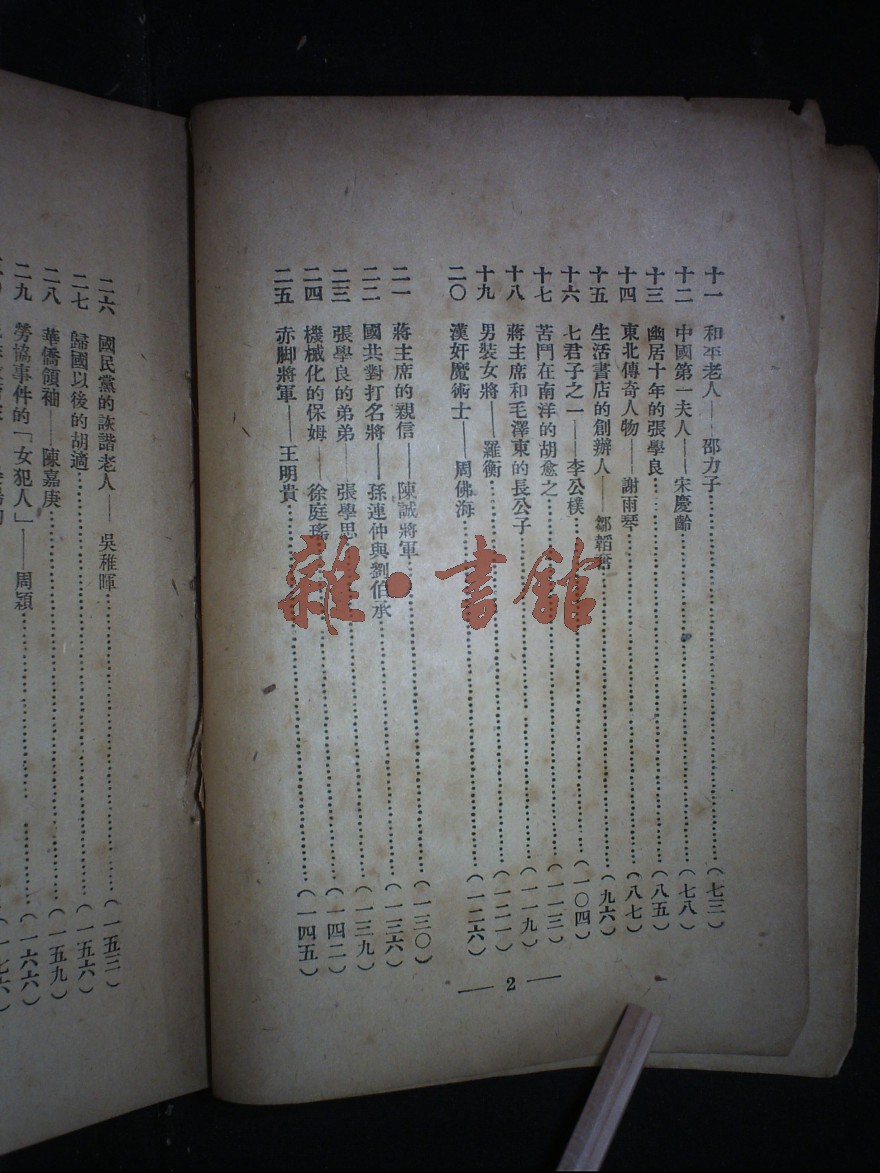 十一 和平老人——邵力子……（七三）
十二 中國第一夫人——宋慶齡……（七八）
十三 幽居十年的張學良……（八五）
十四 東北傳奇人物——謝雨琴……（八七）
十五 生活書店的創辦人——鄒韜奮……（九六）
十六 七君子之一——李公樸……（一〇四）
十七 苦鬥在南洋的胡愈之……（一一三）
十八 蔣主席和毛澤東的長公子……（一一九）
十九 男裝女將——羅衡……（一二一）
二〇 漢奸魔術士——周佛海……（一二六）
二一 蔣主席的親信——陳誠將軍……（一三〇）
二二 國共對打名將——孫連仲與劉伯承……（一三六）
二三 張學良的弟弟——張學思……（一三九）
二四 機械化的保姆——徐庭瑤……（一四二）
二五 赤脚將軍——王明貴……（一四五）
— 2 —
二六 國民黨的詼諧老人——吳稚暉……（一五三）
二七 歸國以後的胡適……（一五六）
二八 華僑領袖——陳嘉庚……（一五九）
二九 勞協事件的「女犯人」——周穎……（一六六）
（一七六）
雜·書館